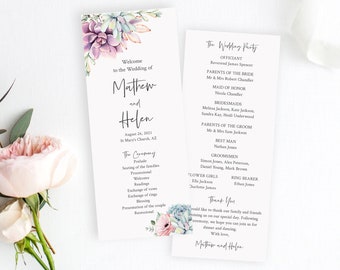 Welcome
to the Wedding of
Mathew
and
Helen
August 26, 2023
St Mary's Church, AZ
The Ceremony
Prelude
Seating of the families
Processional
Welcome
Readings
Exchange of vows
Exchange of rings
Blessing
Presentation of the couple
Recessional
The Wedding Party
OFFICIANT
Reverend James Spencer
PARENTS OF THE BRIDE
Mr & Mrs Robert Chandler
MAID OF HONOR
Nicole Chandler
BRIDESMAIDS
Melissa Jackson, Kate Jackson,
Sandra Kay, Heidi Underwood
PARENTS OF THE GROOM
Mr & Mrs Sam Jackson
BEST MAN
Nathan Jones
GROOMSMEN
Adam Smith, Peter Anderson,
Daniel Young, Mark Brown
FLOWER GIRLS
RING BEARER
Ella Jackson
Ethan Jones
Charlotte James
Thank You
would like to thank our family and friends
joining us on our special day. Following
the ceremony, we hope you can join us for
dinner and dancing.
With love,
Mathew and Helen